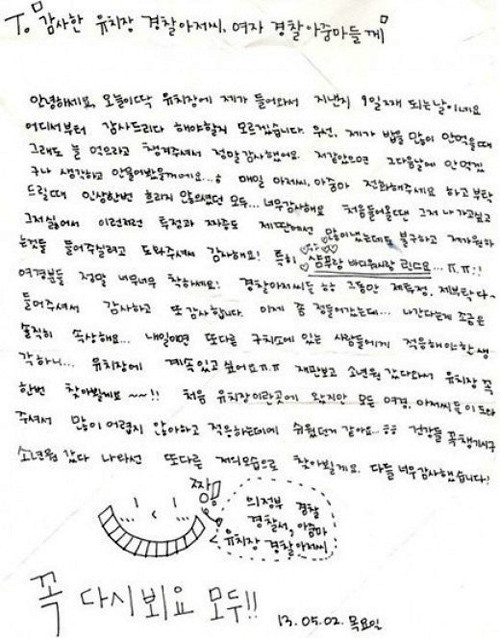 To. 감사한 유치장 경찰아저씨, 여자 경찰아줌마들께
안녕하세요, 오늘이딱 유치장에 제가 들어와서 지낸지 9일째 되는날이네요
어디서부터 감사드리다 해야할지 모르겠습니다. 우선, 제가 밥을 많이 안먹을때
그래도 늘 먹으라고 챙겨주셔서 정말감사했어요. 저같았으면 그다음날에 안먹겠
구나 생각하고 안물어봤을꺼에요..ㅎ 매일 아저씨, 아줌마 전화해주세요 하고 부탁
드릴때 인상한번 흐리지 않으셨던 모두... 너무감사해요 처음들어올땐 그저 나가고싶고
그저싫어서 이런저런 투정과 짜증도 제딴에선 많이냈는데도 불구하고 제가원하
는것들 들어주실려고 도와주셔서 감사해요! 특히 샴푸랑 바디워시랑 린스요...ㅠ.ㅠ!!
여경분들 정말 너무너무 착하세요! 경찰아저씨들 하 그동안 제투정, 제부탁 다-
들어주셔서 감사하고 또 감사합니다. 이제 좀 정들어가는데... 나간다는게 조금은
솔직히 속상해요... 내일이면 또다른 구치소에 있는 사람들에게 적응해야한생
각하니... 유치장에 계속있고싶어요ㅠㅠ 재판보고 소년원 갔다와서 유치장 꼭
한번 찾아뵐게요~~!! 처음 유치장이란곳에 왔지만 모든 여경, 아저씨들이 도와
주셔서 많이 어렵지 않아하고 적응하는데에 쉬웠던거 같아요..ㅎㅎ 건강들 꼭챙기시구
소년원 갔다 나와선 또다른 저의모습으로 찾아뵐게요. 다들 너무감사했습니다!
짱!
의정부 경찰
경찰서, 아줌마
유치장 경찰아저씨
꼭 다시뵈요 모두!!
13.05.02. 목요일